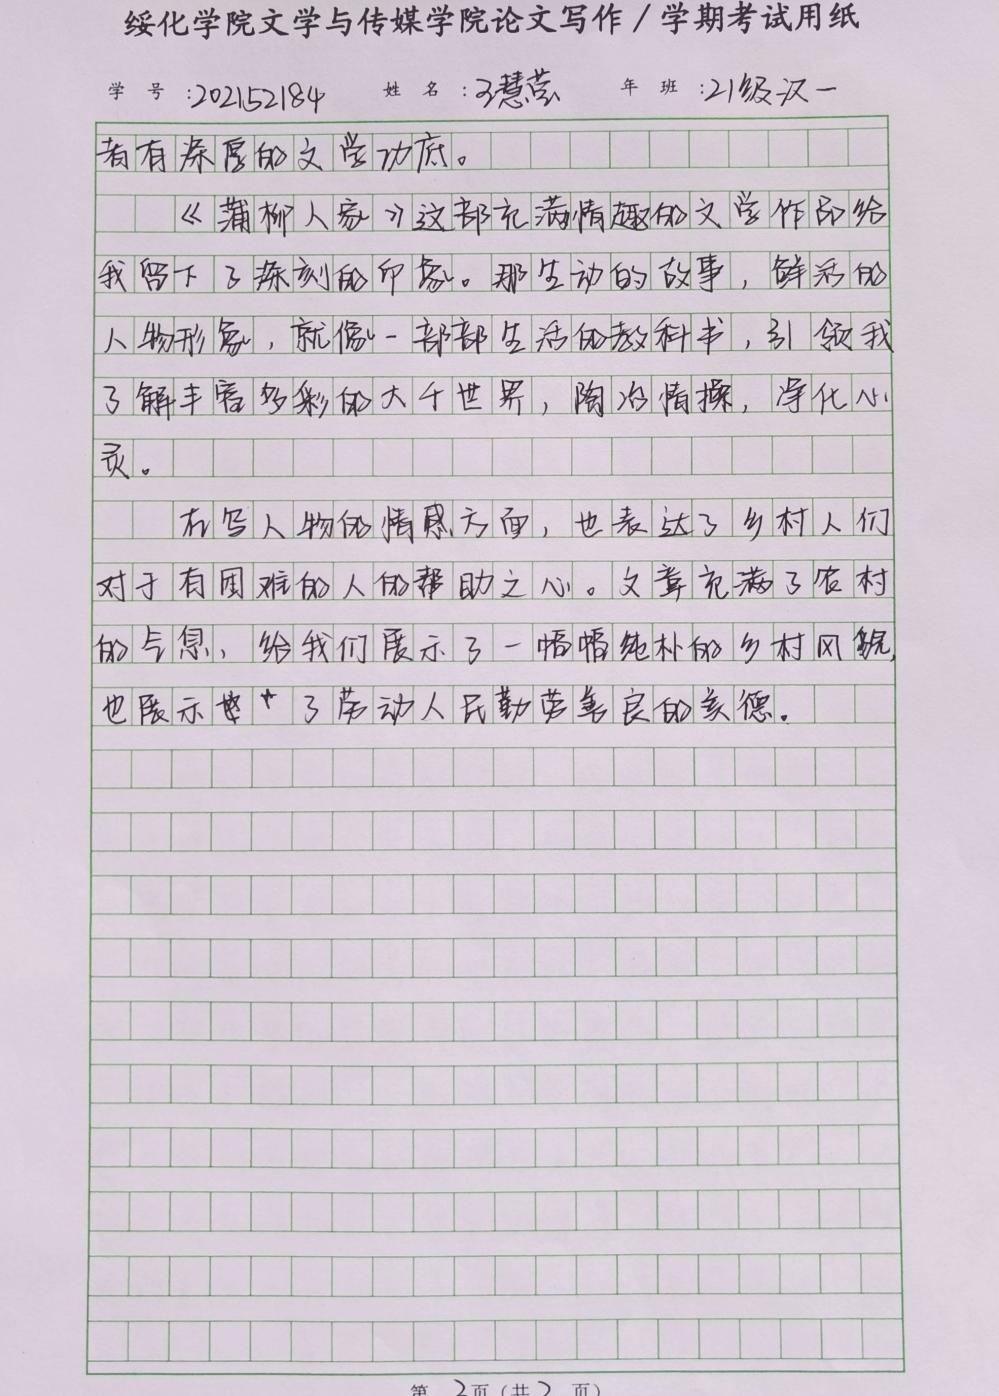 绥化学院文学与传媒学院论文写作/学期考试用纸
学 号 :202152184 姓 名 :王慧莹 年 班 :21级汉一
者有深厚的文学功底。
《蒲柳人家》这部充满情趣的文学作品给
我留下了深刻的印象。那生动的故事,鲜活的
人物形象,就像一部部生活的教科书,引领我
了解丰富多彩的大千世界,陶冶情操,净化心
灵。
在写人物的情感方面,也表达了乡村人们
对于有困难的人的帮助之心。文章充满了农村
的气息、给我们展示了一幅幅纯朴的乡村风貌,
也展示了劳动人民勤劳善良的美德。
第 2页(共2 页)